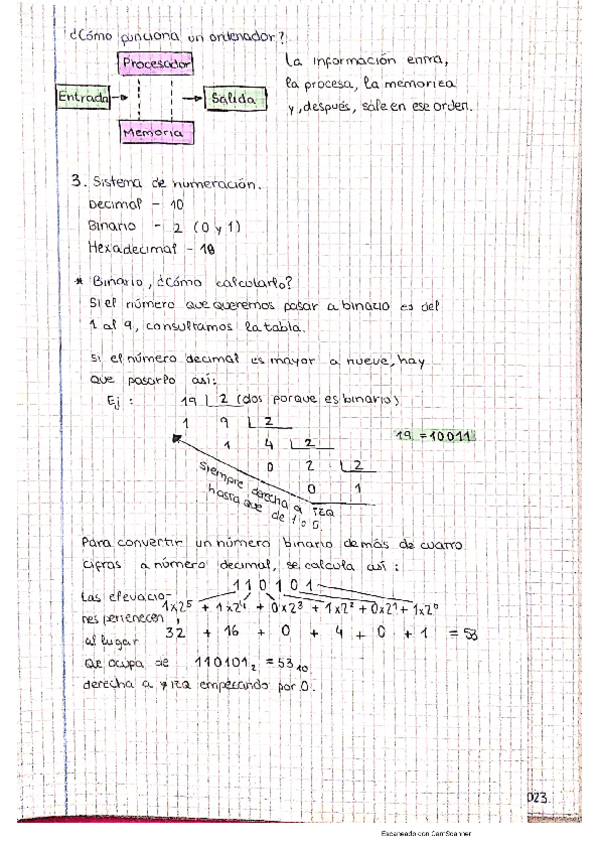 ¿Cómo funciona un ordenador?
Procesador
Entrada
Salida
Memoria
La información entra,
la procesa, la memoriza
y, después, sale en ese orden.
3. Sistema de numeración.
Decimal - 10
Binario - 2 (0 y 1)
Hexadecimal - 16
* Binario, ¿Cómo calcularlo?
Si el número que queremos pasar a binario es del
1 al 9, consultamos la tabla.
Si el número decimal es mayor a nueve, hay
que pasarlo así:
Ej: 19 | 2 (dos porque es binario)
1 9 | 2
1 4 | 2
0 2 | 2
0 1
19 = 10011
Siempre derecha a izq
hasta que de 1 o 0.
Para convertir un número binario de más de cuatro
cifras a número decimal, se calcula así:
110101
Las elevacio-
nes pertenecen
al lugar
que ocupa de
derecha a izq empezando por 0.
1x2⁵ + 1x2⁴ + 0x2³ + 1x2² + 0x2¹ + 1x2⁰
32 + 16 + 0 + 4 + 0 + 1 = 53
110101₂ = 53₁₀
023
Escaneado con CamScanner